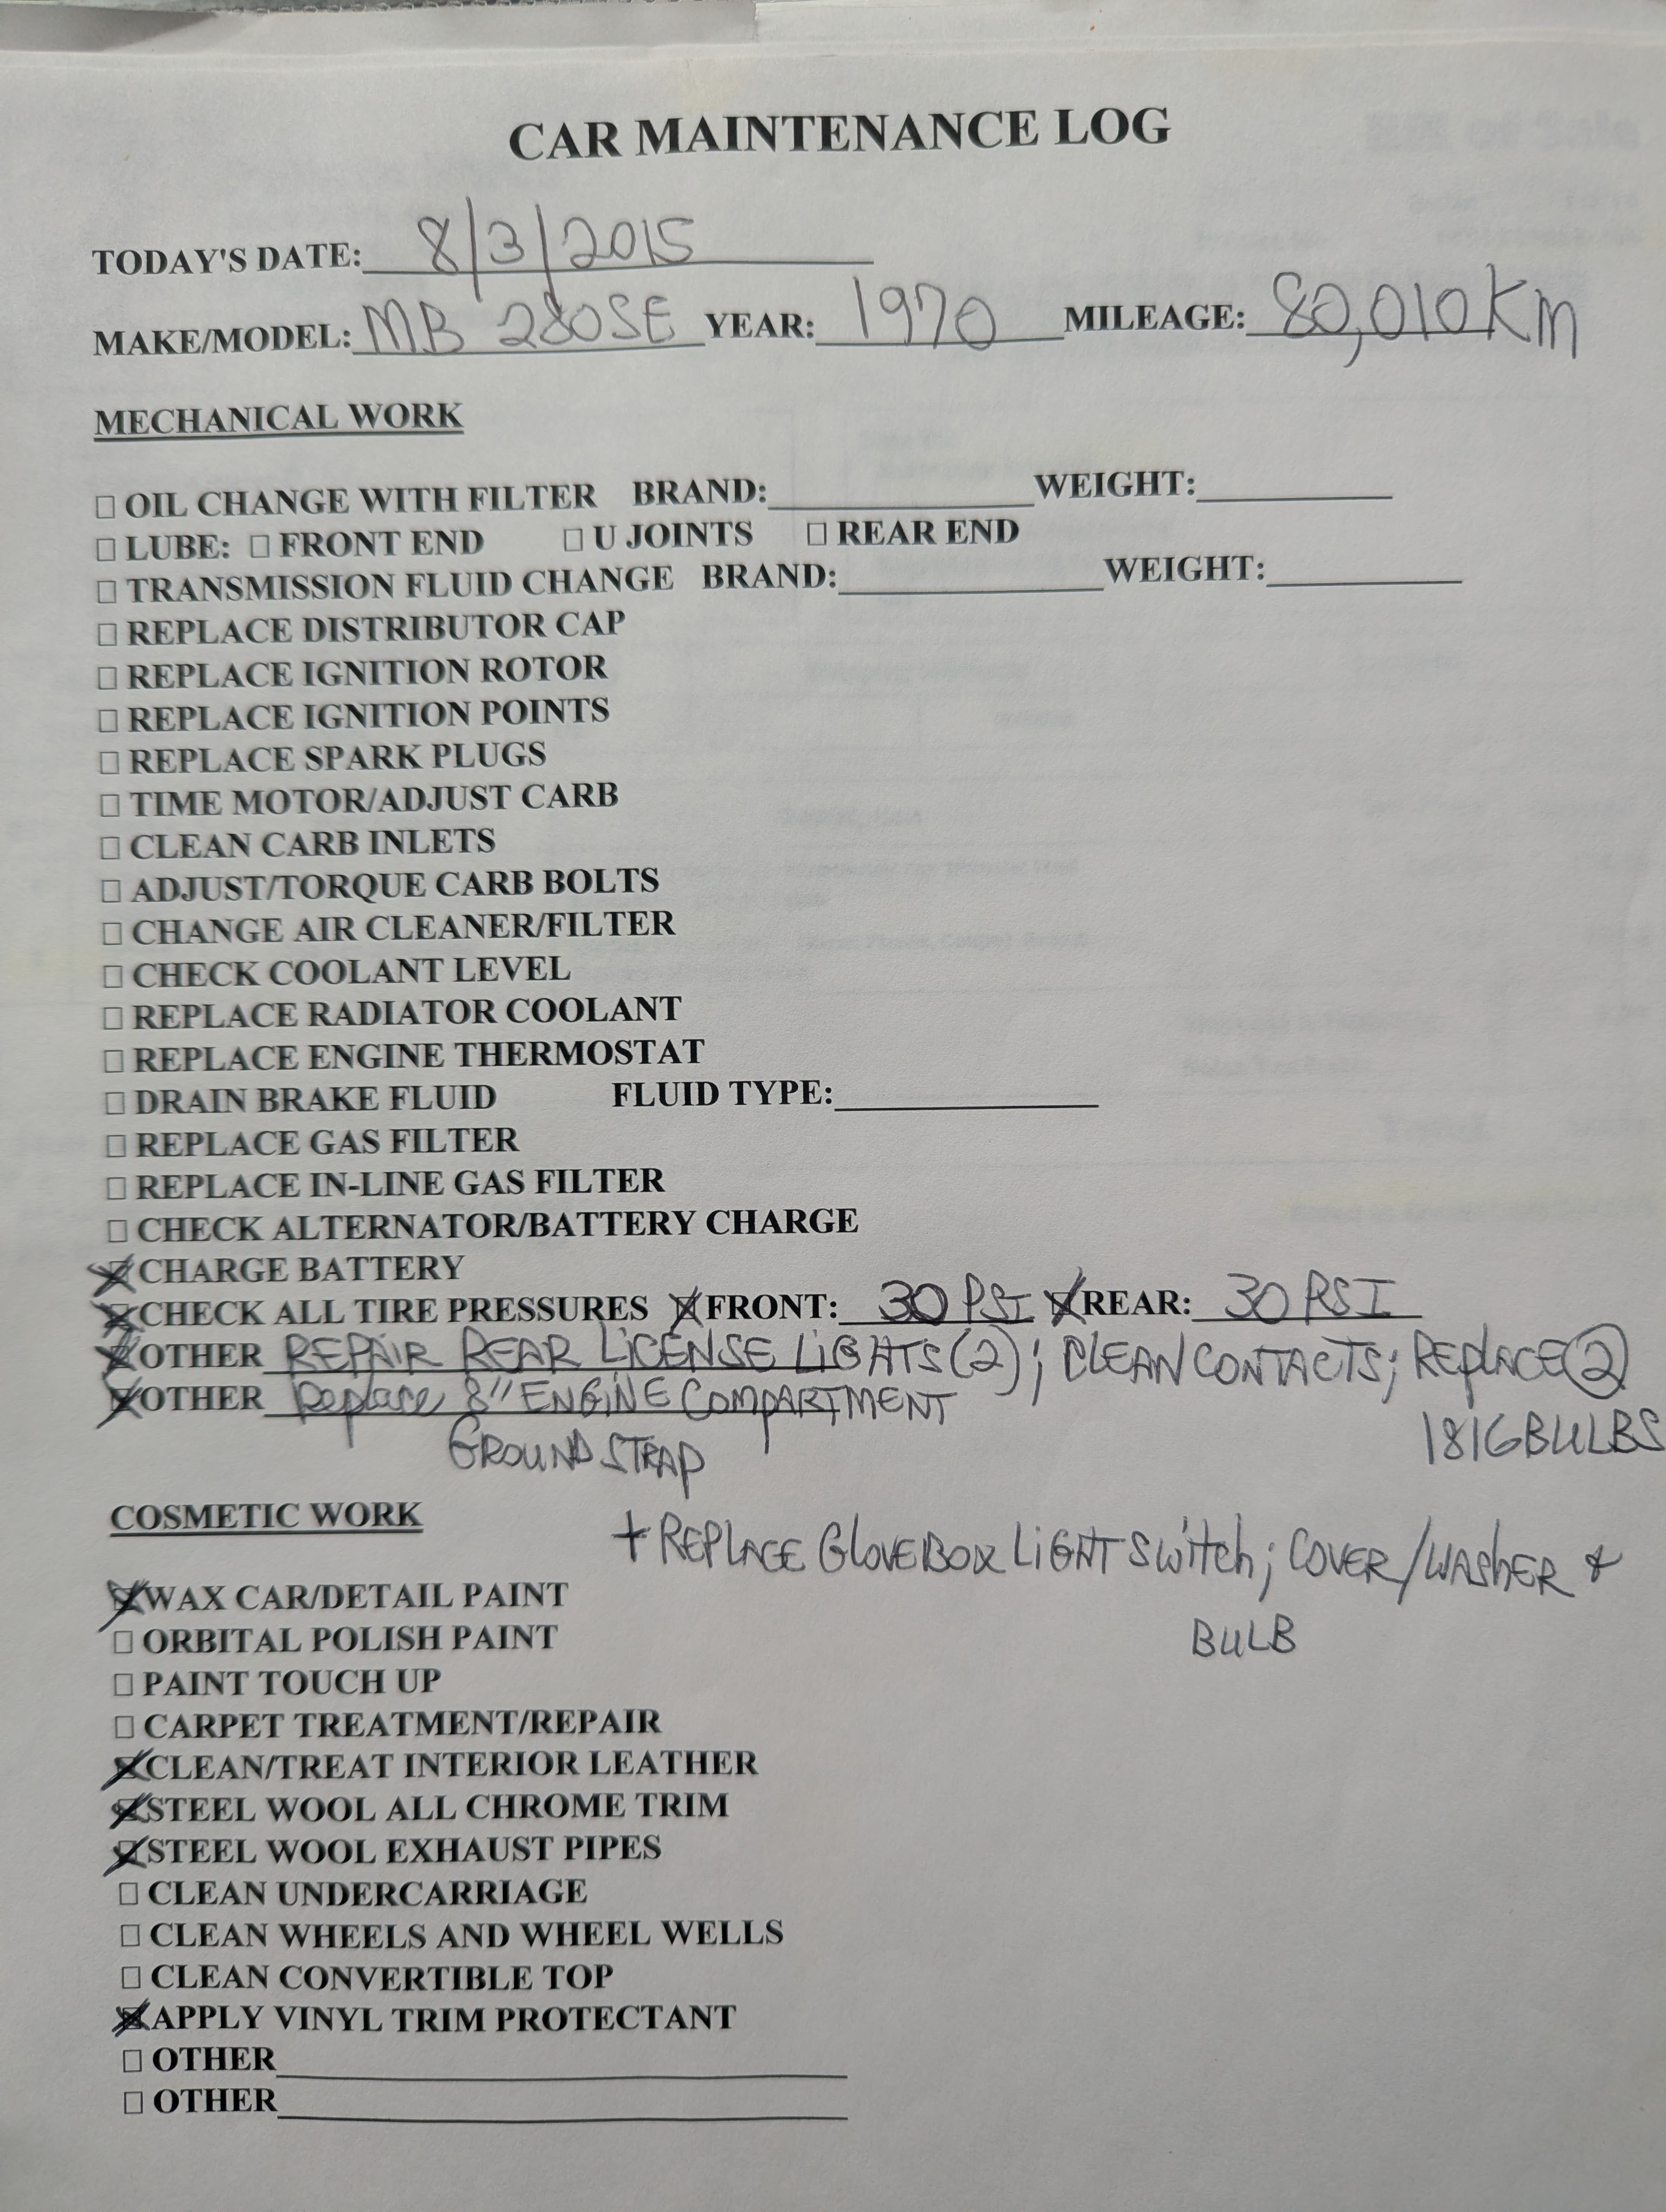 CAR MAINTENANCE LOG
TODAY'S DATE: 8/3/2015
MAKE/MODEL: MB 280SE YEAR: 1970 MILEAGE: 80,010 KM
MECHANICAL WORK
☐ OIL CHANGE WITH FILTER BRAND:____ WEIGHT:____
☐ LUBE: ☐ FRONT END ☐ U JOINTS ☐ REAR END
☐ TRANSMISSION FLUID CHANGE BRAND:____ WEIGHT:____
☐ REPLACE DISTRIBUTOR CAP
☐ REPLACE IGNITION ROTOR
☐ REPLACE IGNITION POINTS
☐ REPLACE SPARK PLUGS
☐ TIME MOTOR/ADJUST CARB
☐ CLEAN CARB INLETS
☐ ADJUST/TORQUE CARB BOLTS
☐ CHANGE AIR CLEANER/FILTER
☐ CHECK COOLANT LEVEL
☐ REPLACE RADIATOR COOLANT
☐ REPLACE ENGINE THERMOSTAT
☐ DRAIN BRAKE FLUID FLUID TYPE:____
☐ REPLACE GAS FILTER
☐ REPLACE IN-LINE GAS FILTER
☐ CHECK ALTERNATOR/BATTERY CHARGE
☒ CHARGE BATTERY
☒ CHECK ALL TIRE PRESSURES ☒ FRONT: 30 PSI ☒ REAR: 30 PSI
☒ OTHER REPAIR REAR LICENSE LIGHTS (2); CLEAN CONTACTS; REPLACE 2
1816 BULBS
☒ OTHER Replace 8" ENGINE COMPARTMENT
GROUND STRAP
+ REPLACE GLOVEBOX LIGHT SWITCH; COVER/WASHER &
BULB
COSMETIC WORK
☒ WAX CAR/DETAIL PAINT
☐ ORBITAL POLISH PAINT
☐ PAINT TOUCH UP
☐ CARPET TREATMENT/REPAIR
☒ CLEAN/TREAT INTERIOR LEATHER
☒ STEEL WOOL ALL CHROME TRIM
☒ STEEL WOOL EXHAUST PIPES
☐ CLEAN UNDERCARRIAGE
☐ CLEAN WHEELS AND WHEEL WELLS
☐ CLEAN CONVERTIBLE TOP
☒ APPLY VINYL TRIM PROTECTANT
☐ OTHER____
☐ OTHER____